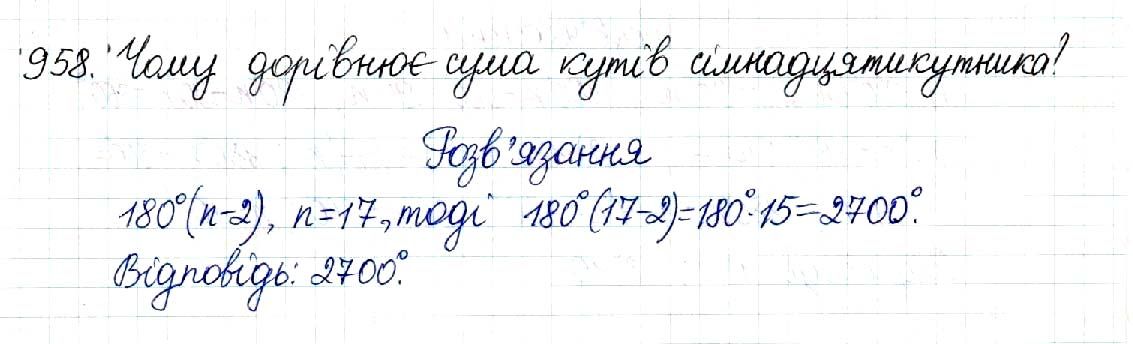 958. Чому дорівнює сума кутів сімнадцятикутника?
Розв'язання
180°(n-2), n=17, тоді 180°(17-2)=180°·15=2700°.
Відповідь: 2700°.